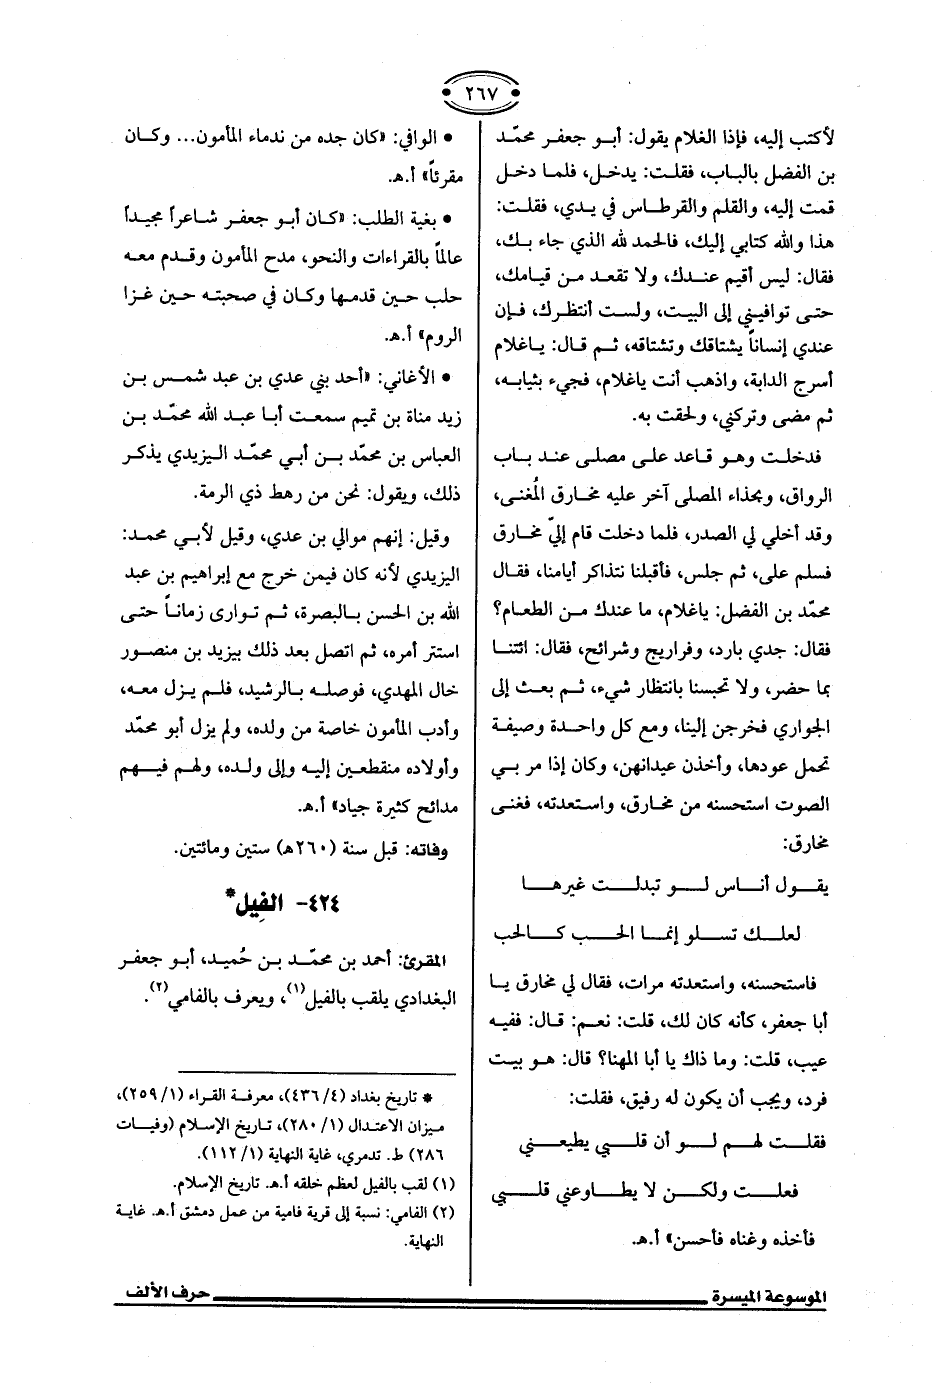 ٢٦٧
لأكتب إليه، فإذا الغلام يقول: أبو جعفر محمّد
بن الفضل بالباب، فقلت: يدخل، فلما دخل
قمت إليه، والقلم والقرطاس في يدي، فقلت:
هذا والله كتابي إليك، فالحمد لله الذي جاء بك،
فقال: ليس أقيم عندك، ولا تقعد من قيامك،
حتى توافيني إلى البيت، ولست أنتظرك، فإن
عندي إنساناً يشتاقك وتشتاقه، ثم قال: ياغلام
أسرج الدابة، واذهب أنت ياغلام، فجيء بثيابه،
ثم مضى وتركني، ولحقت به.
فدخلت وهو قاعد على مصلى عند باب
الرواق، وبحذاء المصلى آخر عليه مخارق المُغنى،
وقد أخلي لي الصدر، فلما دخلت قام إليّ مخارق
فسلم على، ثم جلس، فأقبلنا نتذاكر أيامنا، فقال
محمّد بن الفضل: ياغلام، ما عندك من الطعام؟
فقال: جدي بارد، وفراريج وشرائح، فقال: ائتنا
بما حضر، ولا تحبسنا بانتظار شيء، ثم بعث إلى
الجواري فخرجن إلينا، ومع كل واحدة وصيفة
تحمل عودها، وأخذن عيدانهن، وكان إذا مر بي
الصوت استحسنه من مخارق، واستعدته، فغنى
مخارق:
يقول أناس لو تبدلت غيرها
لعلك تسلو إنما الحب كالحب
فاستحسنه، واستعدته مرات، فقال لي مخارق يا
أبا جعفر، كأنه كان لك، قلت: نعم: قال: ففيه
عيب، قلت: وما ذاك يا أبا المهنا؟ قال: هو بيت
فرد، ويجب أن يكون له رفيق، فقلت:
فقلت لهم لو أن قلبي يطيعني
فعلت ولكن لا يطاوعني قلبي
فأخذه وغناه فأحسن» أ.هـ.
• الوافي: «كان جده من ندماء المأمون... وكان
مقرئاً» أ.هـ.
• بغية الطلب: «كان أبو جعفر شاعراً مجيداً
عالماً بالقراءات والنحو، مدح المأمون وقدم معه
حلب حين قدمها وكان في صحبته حين غزا
الروم» أ.هـ.
• الأغاني: «أحد بني عدي بن عبد شمس بن
زيد مناة بن تميم سمعت أبا عبد الله محمّد بن
العباس بن محمّد بن أبي محمّد اليزيدي يذكر
ذلك، ويقول: نحن من رهط ذي الرمة.
وقيل: إنهم موالي بن عدي، وقيل لأبي محمد:
اليزيدي لأنه كان فيمن خرج مع إبراهيم بن عبد
الله بن الحسن بالبصرة، ثم توارى زماناً حتى
استتر أمره، ثم اتصل بعد ذلك بيزيد بن منصور
خال المهدي، فوصله بالرشيد، فلم يزل معه،
وأدب المأمون خاصة من ولده، ولم يزل أبو محمّد
وأولاده منقطعين إليه وإلى ولده، ولهم فيهم
مدائح كثيرة جياد» أ.هـ.
وفاته: قبل سنة (٢٦٠هـ) ستين ومائتين.
٤٢٤- الفِيل*
المقرئ: أحمد بن محمّد بن حُميد، أبو جعفر
البغدادي يلقب بالفيل(١)، ويعرف بالفامي(٢).
* تاريخ بغداد (٤/٤٣٦)، معرفة القراء (١/٢٥٩)،
ميزان الاعتدال (١/٢٨٠)، تاريخ الإسلام (وفيات
٢٨٦) ط. تدمري، غاية النهاية (١/١١٢).
(١) لقب بالفيل لعظم خلقه أ.هـ. تاريخ الإسلام.
(٢) الفامي: نسبة إلى قرية فامية من عمل دمشق أ.هـ. غاية
النهاية.
الموسوعة الميسرة
حرف الألف